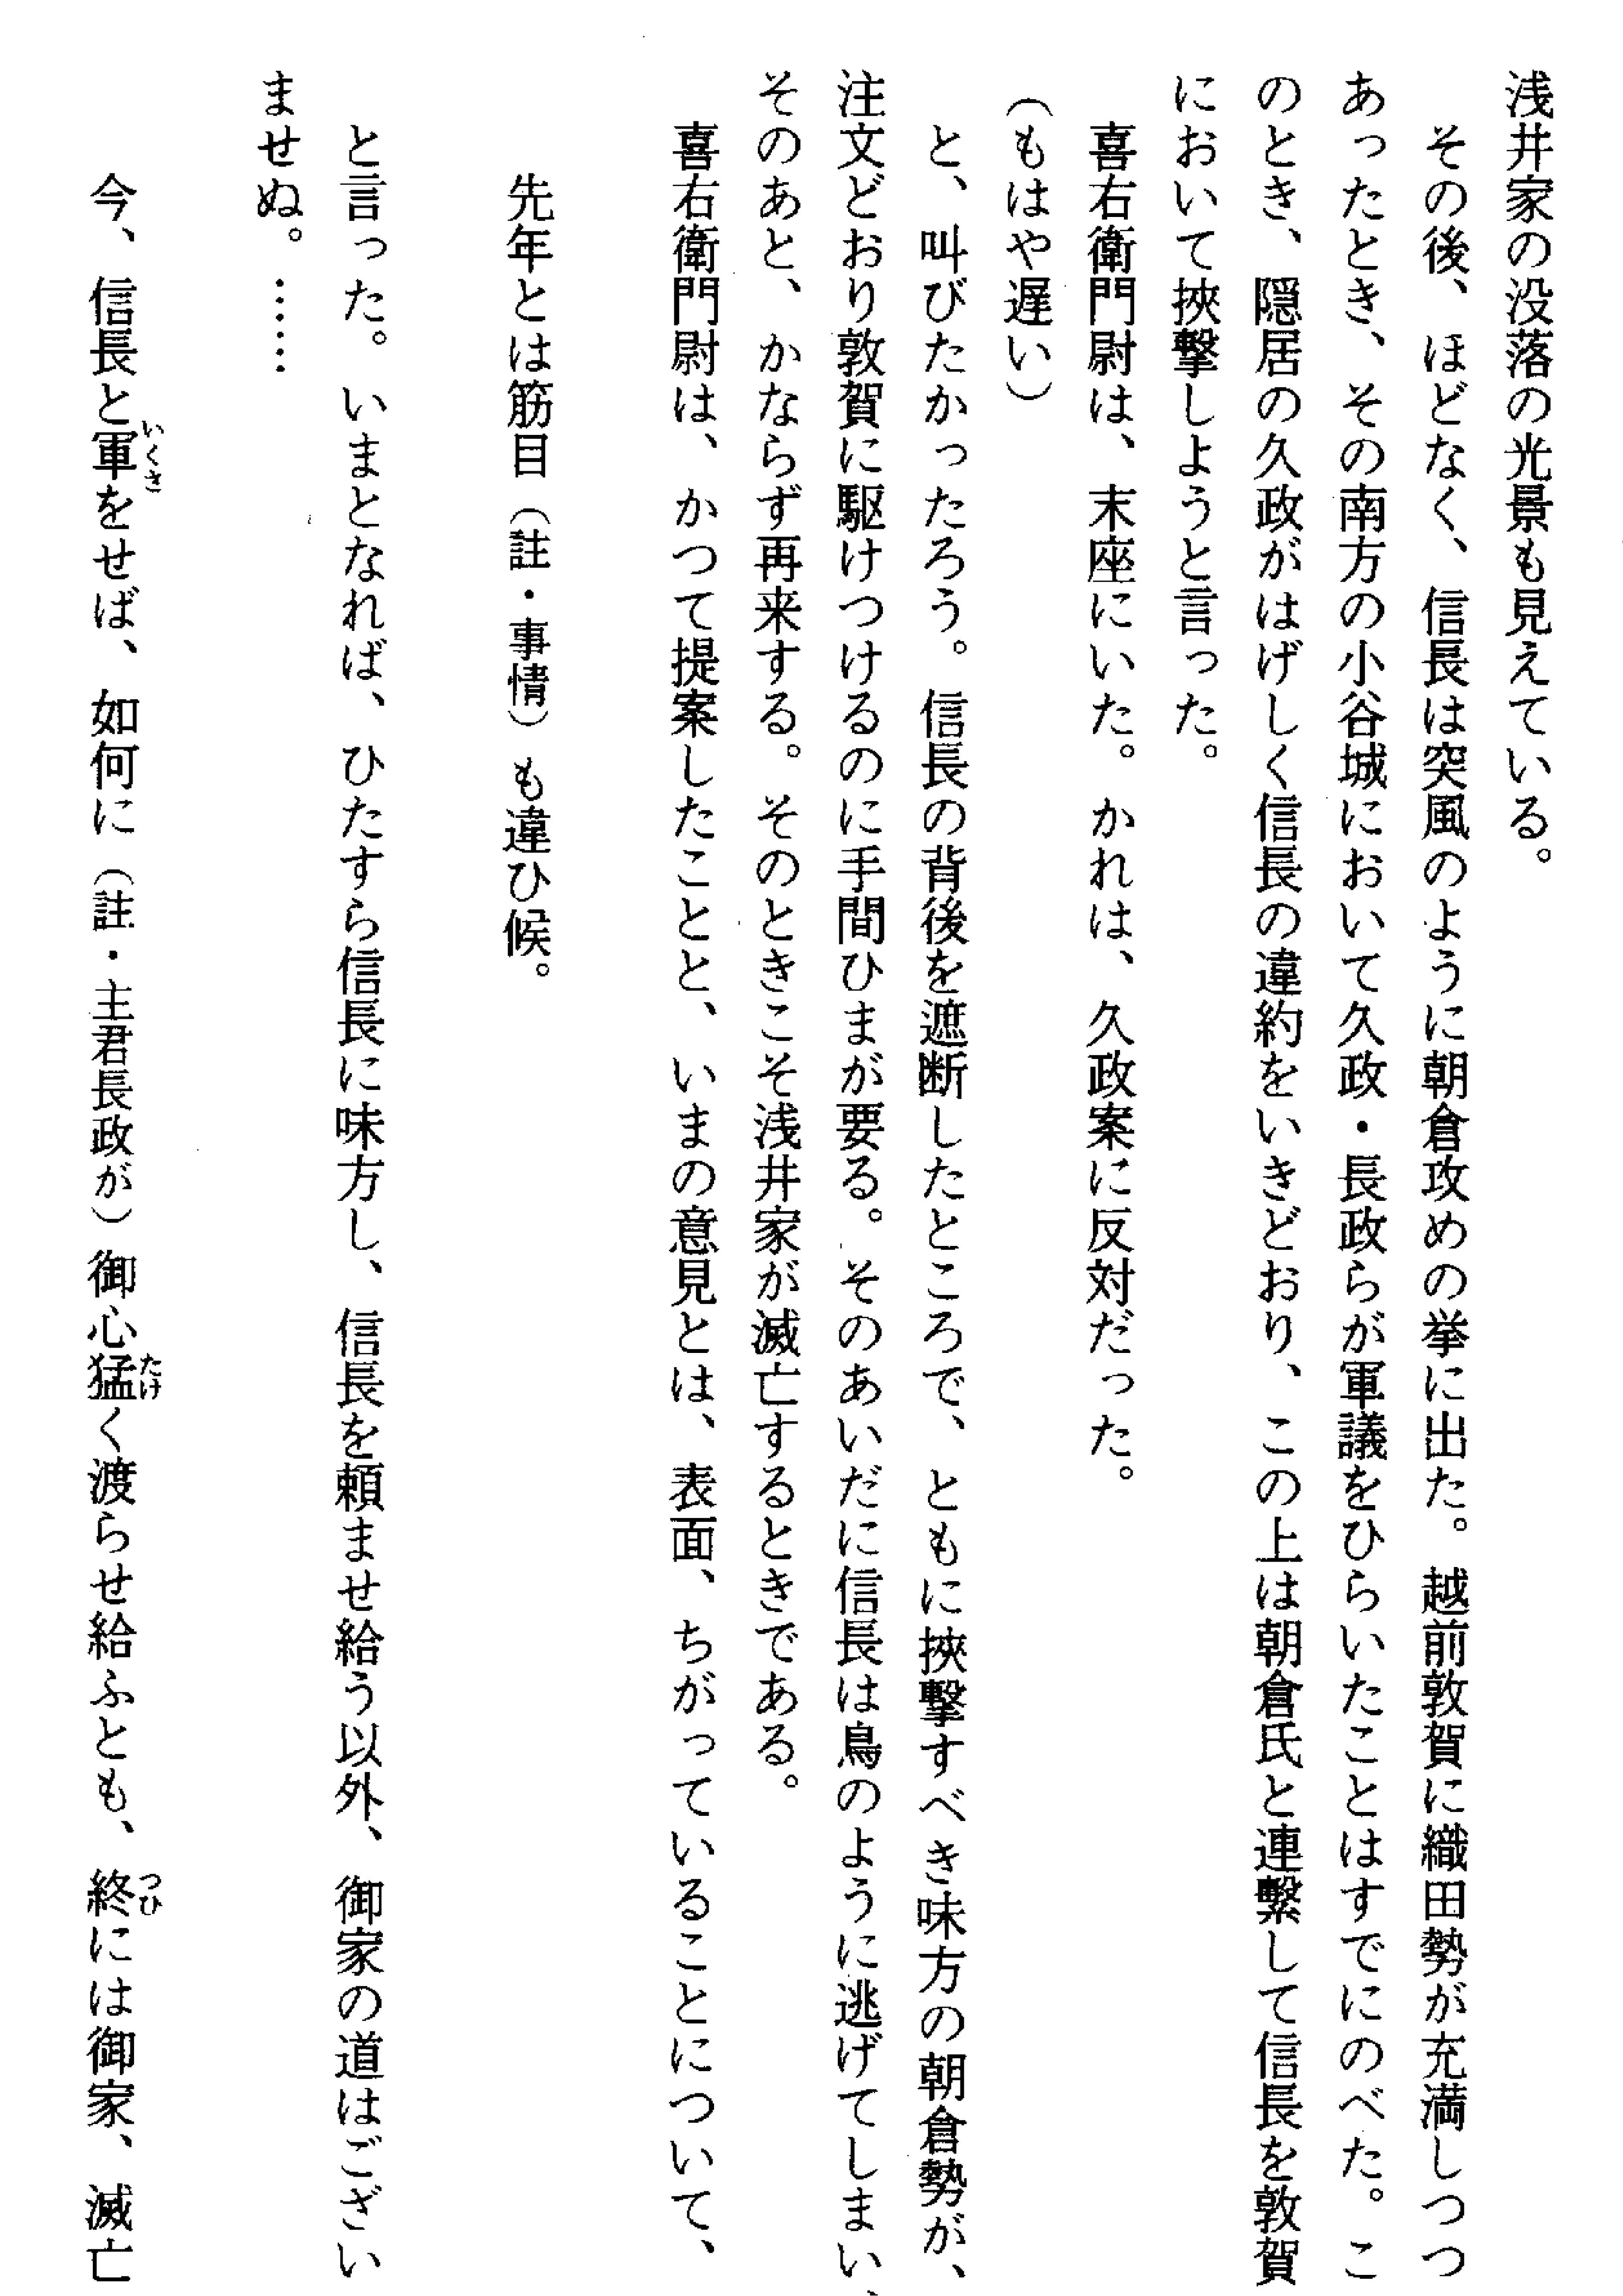 浅井家の没落の光景も見えている。
　その後、ほどなく、信長は突風のように朝倉攻めの挙に出た。越前敦賀に織田勢が充満しつつ
あったとき、その南方の小谷城において久政・長政らが軍議をひらいたことはすでにのべた。こ
のとき、隠居の久政がはげしく信長の違約をいきどおり、この上は朝倉氏と連繫して信長を敦賀
において挾撃しようと言った。
　喜右衛門尉は、末座にいた。かれは、久政案に反対だった。
（もはや遅い）
　と、叫びたかったろう。信長の背後を遮断したところで、ともに挾撃すべき味方の朝倉勢が、
注文どおり敦賀に駆けつけるのに手間ひまが要る。そのあいだに信長は鳥のように逃げてしまい、
そのあと、かならず再来する。そのときこそ浅井家が滅亡するときである。
　喜右衛門尉は、かつて提案したことと、いまの意見とは、表面、ちがっていることについて、
　　先年とは筋目（註・事情）も違ひ候。
　と言った。いまとなれば、ひたすら信長に味方し、信長を頼ませ給う以外、御家の道はござい
ませぬ。……
　　今、信長と軍いくさをせば、如何に（註・主君長政が）御心猛たけく渡らせ給ふとも、終つひには御家、滅亡